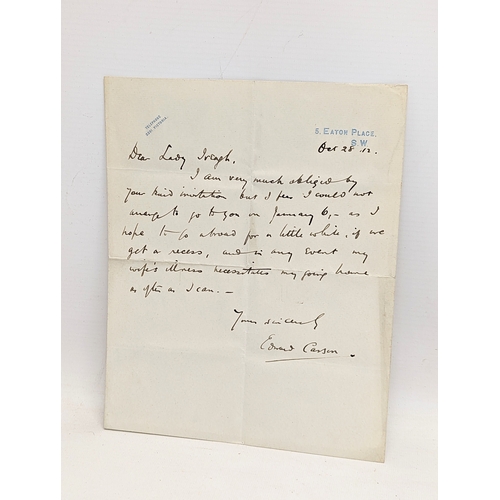 TELEPHONE
VICTORIA.
5, EATON PLACE,
S.W.
Oct 28. 12.
Dear Lady Iveagh,
I am very much obliged by
your kind invitation but I fear I could not
arrange to go to you on January 6, – as I
hope to go abroad for a little while, if we
get a recess, and in any event my
wife's illness necessitates my going home
as often as I can. –
Yours sincerely
Edward Carson.